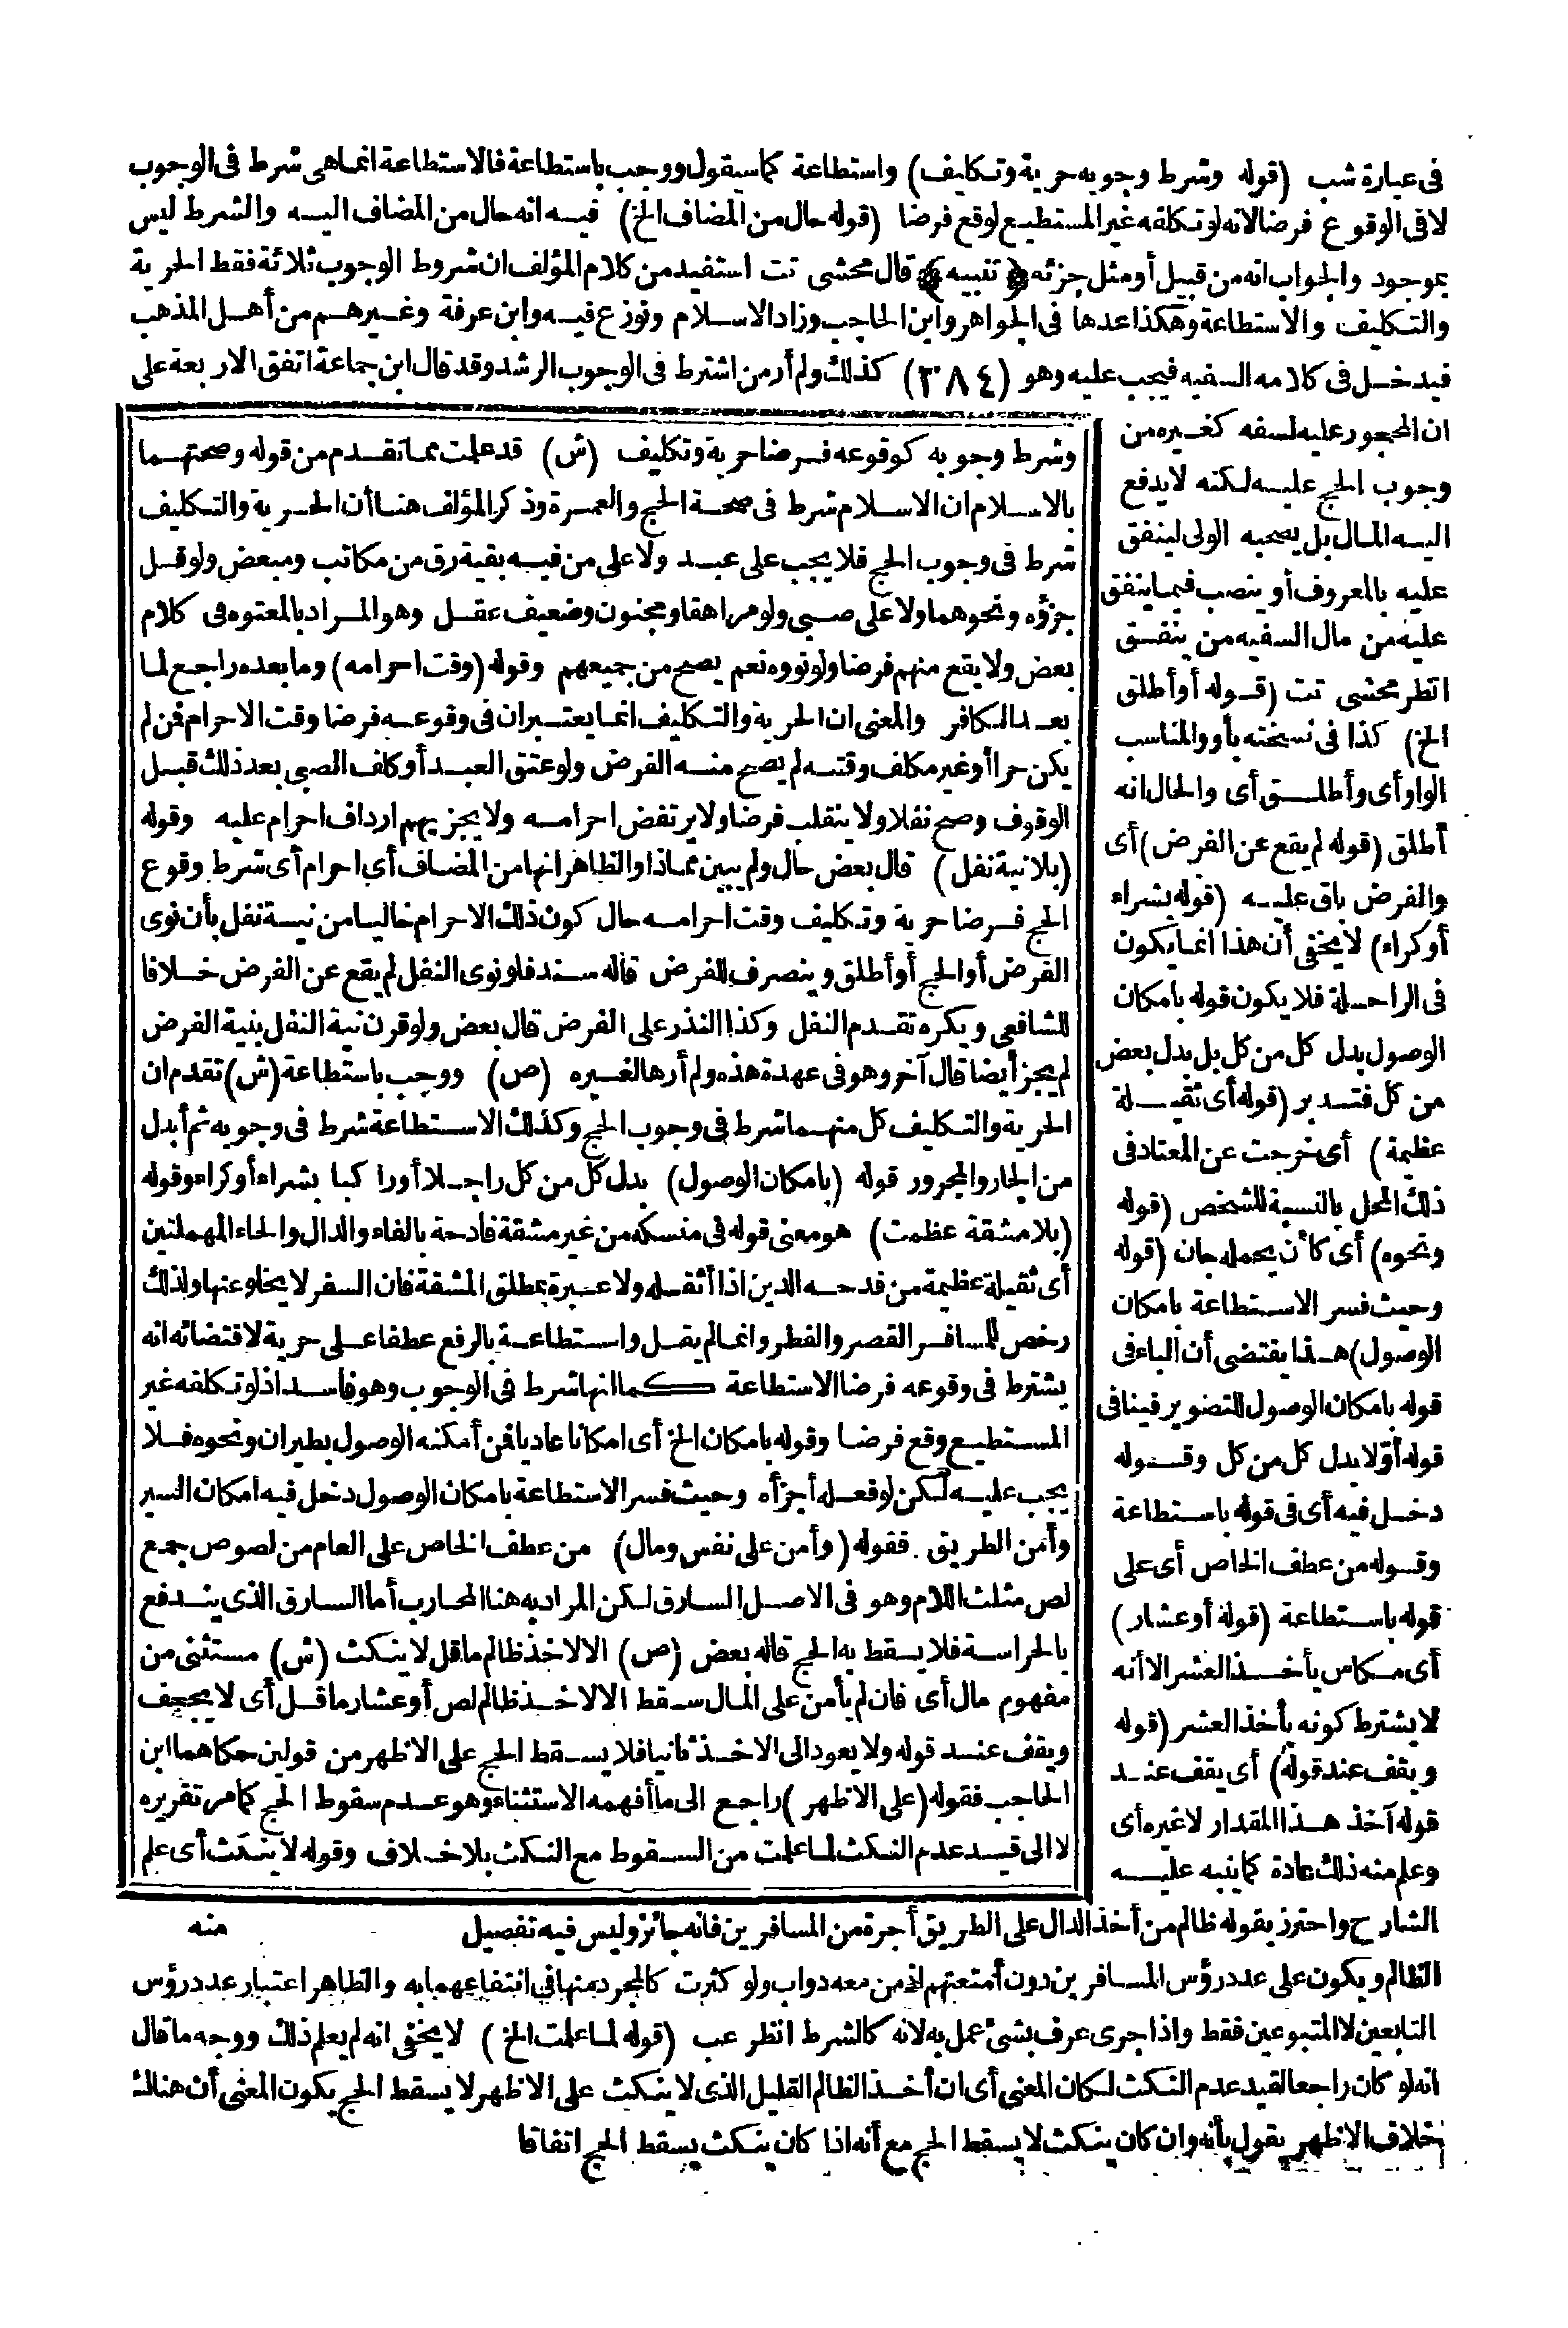 فى عبارة شب (قوله وشرط وجوبه حرية وتكليف) واستطاعة كما سيقول ووجب باستطاعة فالاستطاعة انما هى شرط فى الوجوب
لا فى الوقوع فرضا لانه لو تكلفه غير المستطيع لوقع فرضا (قوله حال من المضاف الخ) فيه انه حال من المضاف اليه والشرط ليس
بموجود والجواب انه من قبيل أو مثل جزئه ﴿تنبيه﴾ قال محشى تت استفيد من كلام المؤلف ان شروط الوجوب ثلاثة فقط الحرية
والتكليف والاستطاعة وهكذا عدها فى الجواهر وابن الحاجب وزاد الاسلام ونوزع فيه وابن عرفة وغيرهم من أهل المذهب
فيدخل فى كلامه السفيه فيجب عليه وهو (٢٨٤) كذلك ولم أر من اشترط فى الوجوب الرشد وقد قال ابن جماعة اتفق الاربعة على
ان المحجور عليه لسفه كغيره من
وجوب الحج عليه لكنه لا يدفع
اليه المال بل يصحبه الولى لينفق
عليه بالمعروف أو ينصب فيما ينفق
عليه من مال السفيه من ينفق
انظر محشى تت (قوله أو أطلق
الخ) كذا فى نسخته بأو والمناسب
الواو أى وأطلق أى والحال انه
أطلق (قوله لم يقع عن الفرض) أى
والفرض باق عليه (قوله بشراء
أو كراء) لا يخفى أن هذا انما يكون
فى الراحلة فلا يكون قوله بامكان
الوصول بدل كل من كل بل بدل بعض
من كل فتدبر (قوله أى ثقيلة
عظيمة) أى خرجت عن المعتاد فى
ذلك المحل بالنسبة للشخص (قوله
ونحوه) أى كأن يحمله جان (قوله
وحيث فسر الاستطاعة بامكان
الوصول) هذا يقتضى أن الباء فى
قوله بامكان الوصول للتصوير فينافى
قوله أولا بدل كل من كل وقوله
دخل فيه أى فى قوله باستطاعة
وقوله من عطف الخاص أى على
قوله باستطاعة (قوله أو عشار)
أى مكاس يأخذ العشر الا أنه
لا يشترط كونه يأخذ العشر (قوله
ويقف عند قوله) أى يقف عند
قوله آخذ هذا المقدار لا غيره أى
وعلم منه ذلك عادة كما ينبه عليه
وشرط وجوبه كوقوعه فرضا حرية وتكليف (ش) قد علمت مما تقدم من قوله وصحتهما
بالاسلام ان الاسلام شرط فى صحة الحج والعمرة وذكر المؤلف هنا أن الحرية والتكليف
شرط فى وجوب الحج فلا يجب على عبد ولا على من فيه بقية رق من مكاتب ومبعض ولو قل
جزؤه ونحوهما ولا على صبى ولو مراهقا ومجنون وضعيف عقل وهو المراد بالمعتوه فى كلام
بعض ولا يقع منهم فرضا ولو نووه نعم يصح من جميعهم وقوله (وقت احرامه) وما بعده راجع لما
بعد الكافر والمعنى ان الحرية والتكليف انما يعتبران فى وقوعه فرضا وقت الاحرام فمن لم
يكن حرا أو غير مكلف وقته لم يصح منه الفرض ولو عتق العبد أو كلف الصبى بعد ذلك قبل
الوقوف وصح نفلا ولا ينقلب فرضا ولا يرتفض احرامه ولا يجزيهم ارداف احرام عليه وقوله
(بلا نية نفل) قال بعض حال ولم يبين مماذا والظاهر انها من المضاف أى احرام أى شرط وقوع
الحج فرضا حرية وتكليف وقت احرامه حال كون ذلك الاحرام خاليا من نية نفل بأن نوى
الفرض أو الحج أو أطلق وينصرف للفرض قاله سند فلو نوى النفل لم يقع عن الفرض خلافا
للشافعى ويكره تقدم النفل وكذا النذر على الفرض قال بعض ولو قرن نية النفل بنية الفرض
لم يجز أيضا قال آخر وهو فى عهدة هذه ولم أرها لغيره (ص) ووجب باستطاعة (ش) تقدم ان
الحرية والتكليف كل منهما شرط فى وجوب الحج وكذلك الاستطاعة شرط فى وجوبه ثم أبدل
من الجار والمجرور قوله (بامكان الوصول) بدل كل من كل راجلا أو راكبا بشراء أو كراء وقوله
(بلا مشقة عظمت) هو معنى قوله فى منسكه من غير مشقة فادحة بالفاء والدال والحاء المهملتين
أى ثقيلة عظيمة من قدحه الدين اذا أثقله ولا عبرة بمطلق المشقة فان السفر لا يخلو عنها ولذلك
رخص للمسافر القصر والفطر وانما لم يقل واستطاعة بالرفع عطفا على حرية لاقتضائه انه
يشترط فى وقوعه فرضا الاستطاعة كما انها شرط فى الوجوب وهو فاسد اذ لو تكلفه غير
المستطيع وقع فرضا وقوله بامكان الخ أى امكانا عاديا فمن أمكنه الوصول بطيران ونحوه فلا
يجب عليه لكن لو فعله أجزأه وحيث فسر الاستطاعة بامكان الوصول دخل فيه امكان السير
وأمن الطريق. فقوله (وأمن على نفس ومال) من عطف الخاص على العام من لصوص جمع
لص مثلث اللام وهو فى الاصل السارق لكن المراد به هنا المحارب أما السارق الذى يندفع
بالحراسة فلا يسقط به الحج قاله بعض (ص) الا لاخذ ظالم ما قل لا ينكث (ش) مستثنى من
مفهوم مال أى فان لم يأمن على المال سقط الا لاخذ ظالم لص أو عشار ما قل أى لا يجحف
ويقف عند قوله ولا يعود الى الاخذ ثانيا فلا يسقط الحج على الاظهر من قولين حكاهما ابن
الحاجب فقوله (على الاظهر) راجع الى ما أفهمه الاستثناء وهو عدم سقوط الحج كما مر تقريره
لا الى قيد عدم النكث لما علمت من السقوط مع النكث بلا خلاف وقوله لا ينكث أى علم
منه
الشارح واحترز بقوله ظالم من أخذ الدال على الطريق أجرة من المسافرين فانه جائز وليس فيه تفصيل
الظالم ويكون على عدد رؤس المسافرين دون أمتعتهم اذ من معه دواب ولو كثرت كالمجرد منها فى انتفاعهما به والظاهر اعتبار عدد رؤس
التابعين لا المتبوعين فقط واذا جرى عرف بشئ عمل به لانه كالشرط انظر عب (قوله لما علمت الخ) لا يخفى انه لم يعلم ذلك ووجه ما قال
انه لو كان راجعا لقيد عدم النكث لكان المعنى أى ان أخذ الظالم القليل الذى لا ينكث على الاظهر لا يسقط الحج يكون المعنى أن هناك
خلاف الاظهر يقول بأنه وان كان ينكث لا يسقط الحج مع أنه اذا كان ينكث يسقط الحج اتفاقا